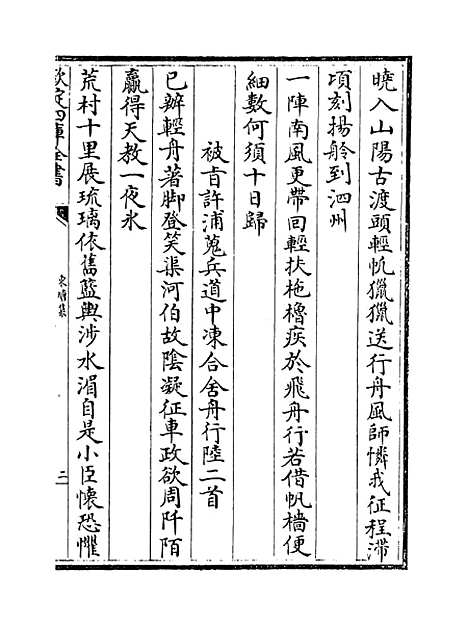 曉入山陽古渡頭輕帆獵獵送行舟風師憐我征程滯
頃刻揚舲到泗州
一陣南風更帶回輕扶柂櫓疾於飛舟行若借帆檣便
細數何須十日歸
被旨許浦蒐兵道中凍合舍舟行陸二首
已辦輕舟著脚登笑渠河伯故陰凝征車政欲周阡陌
贏得天教一夜氷
荒村十里展琉璃依舊籃輿涉水湄自是小臣懷恐懼
欽定四庫全書
東塘集
三